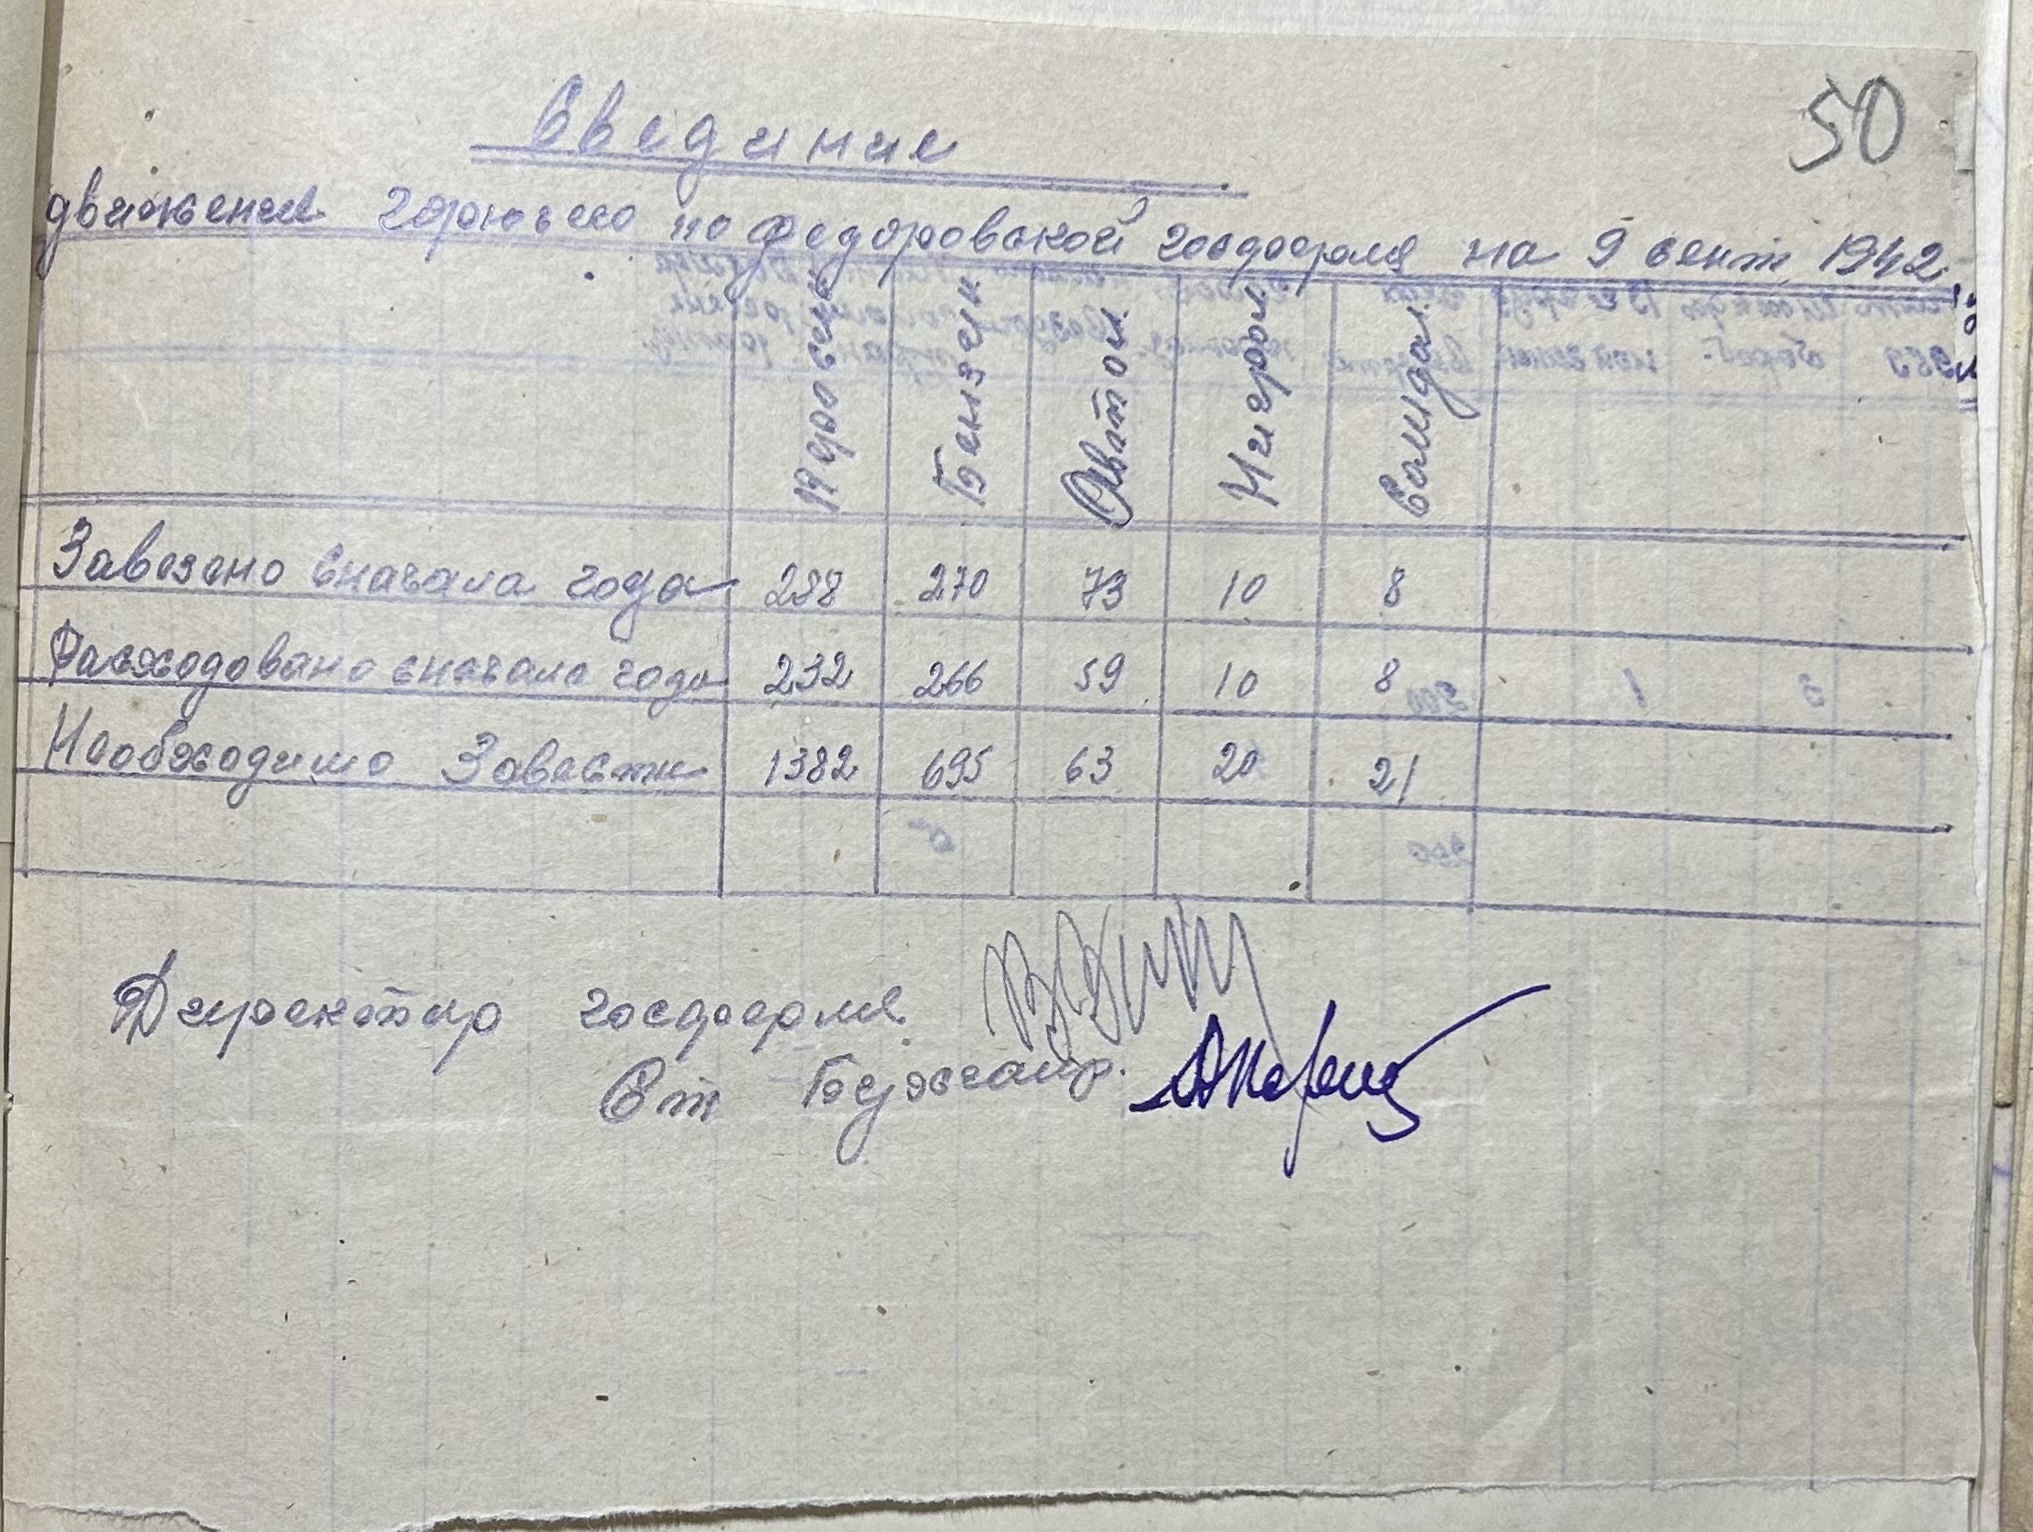 50
Сведение
движения горючего по федоровской госдоферме на 9 сент 1942
Бензин Автол Нигрол Солидол
Завезено сначала года 288 270 73 10 8
Расходовано сначала года 232 266 59 10 8
Необходимо Завести 1382 695 63 20 21
Директор
Ст Бухгалтр.